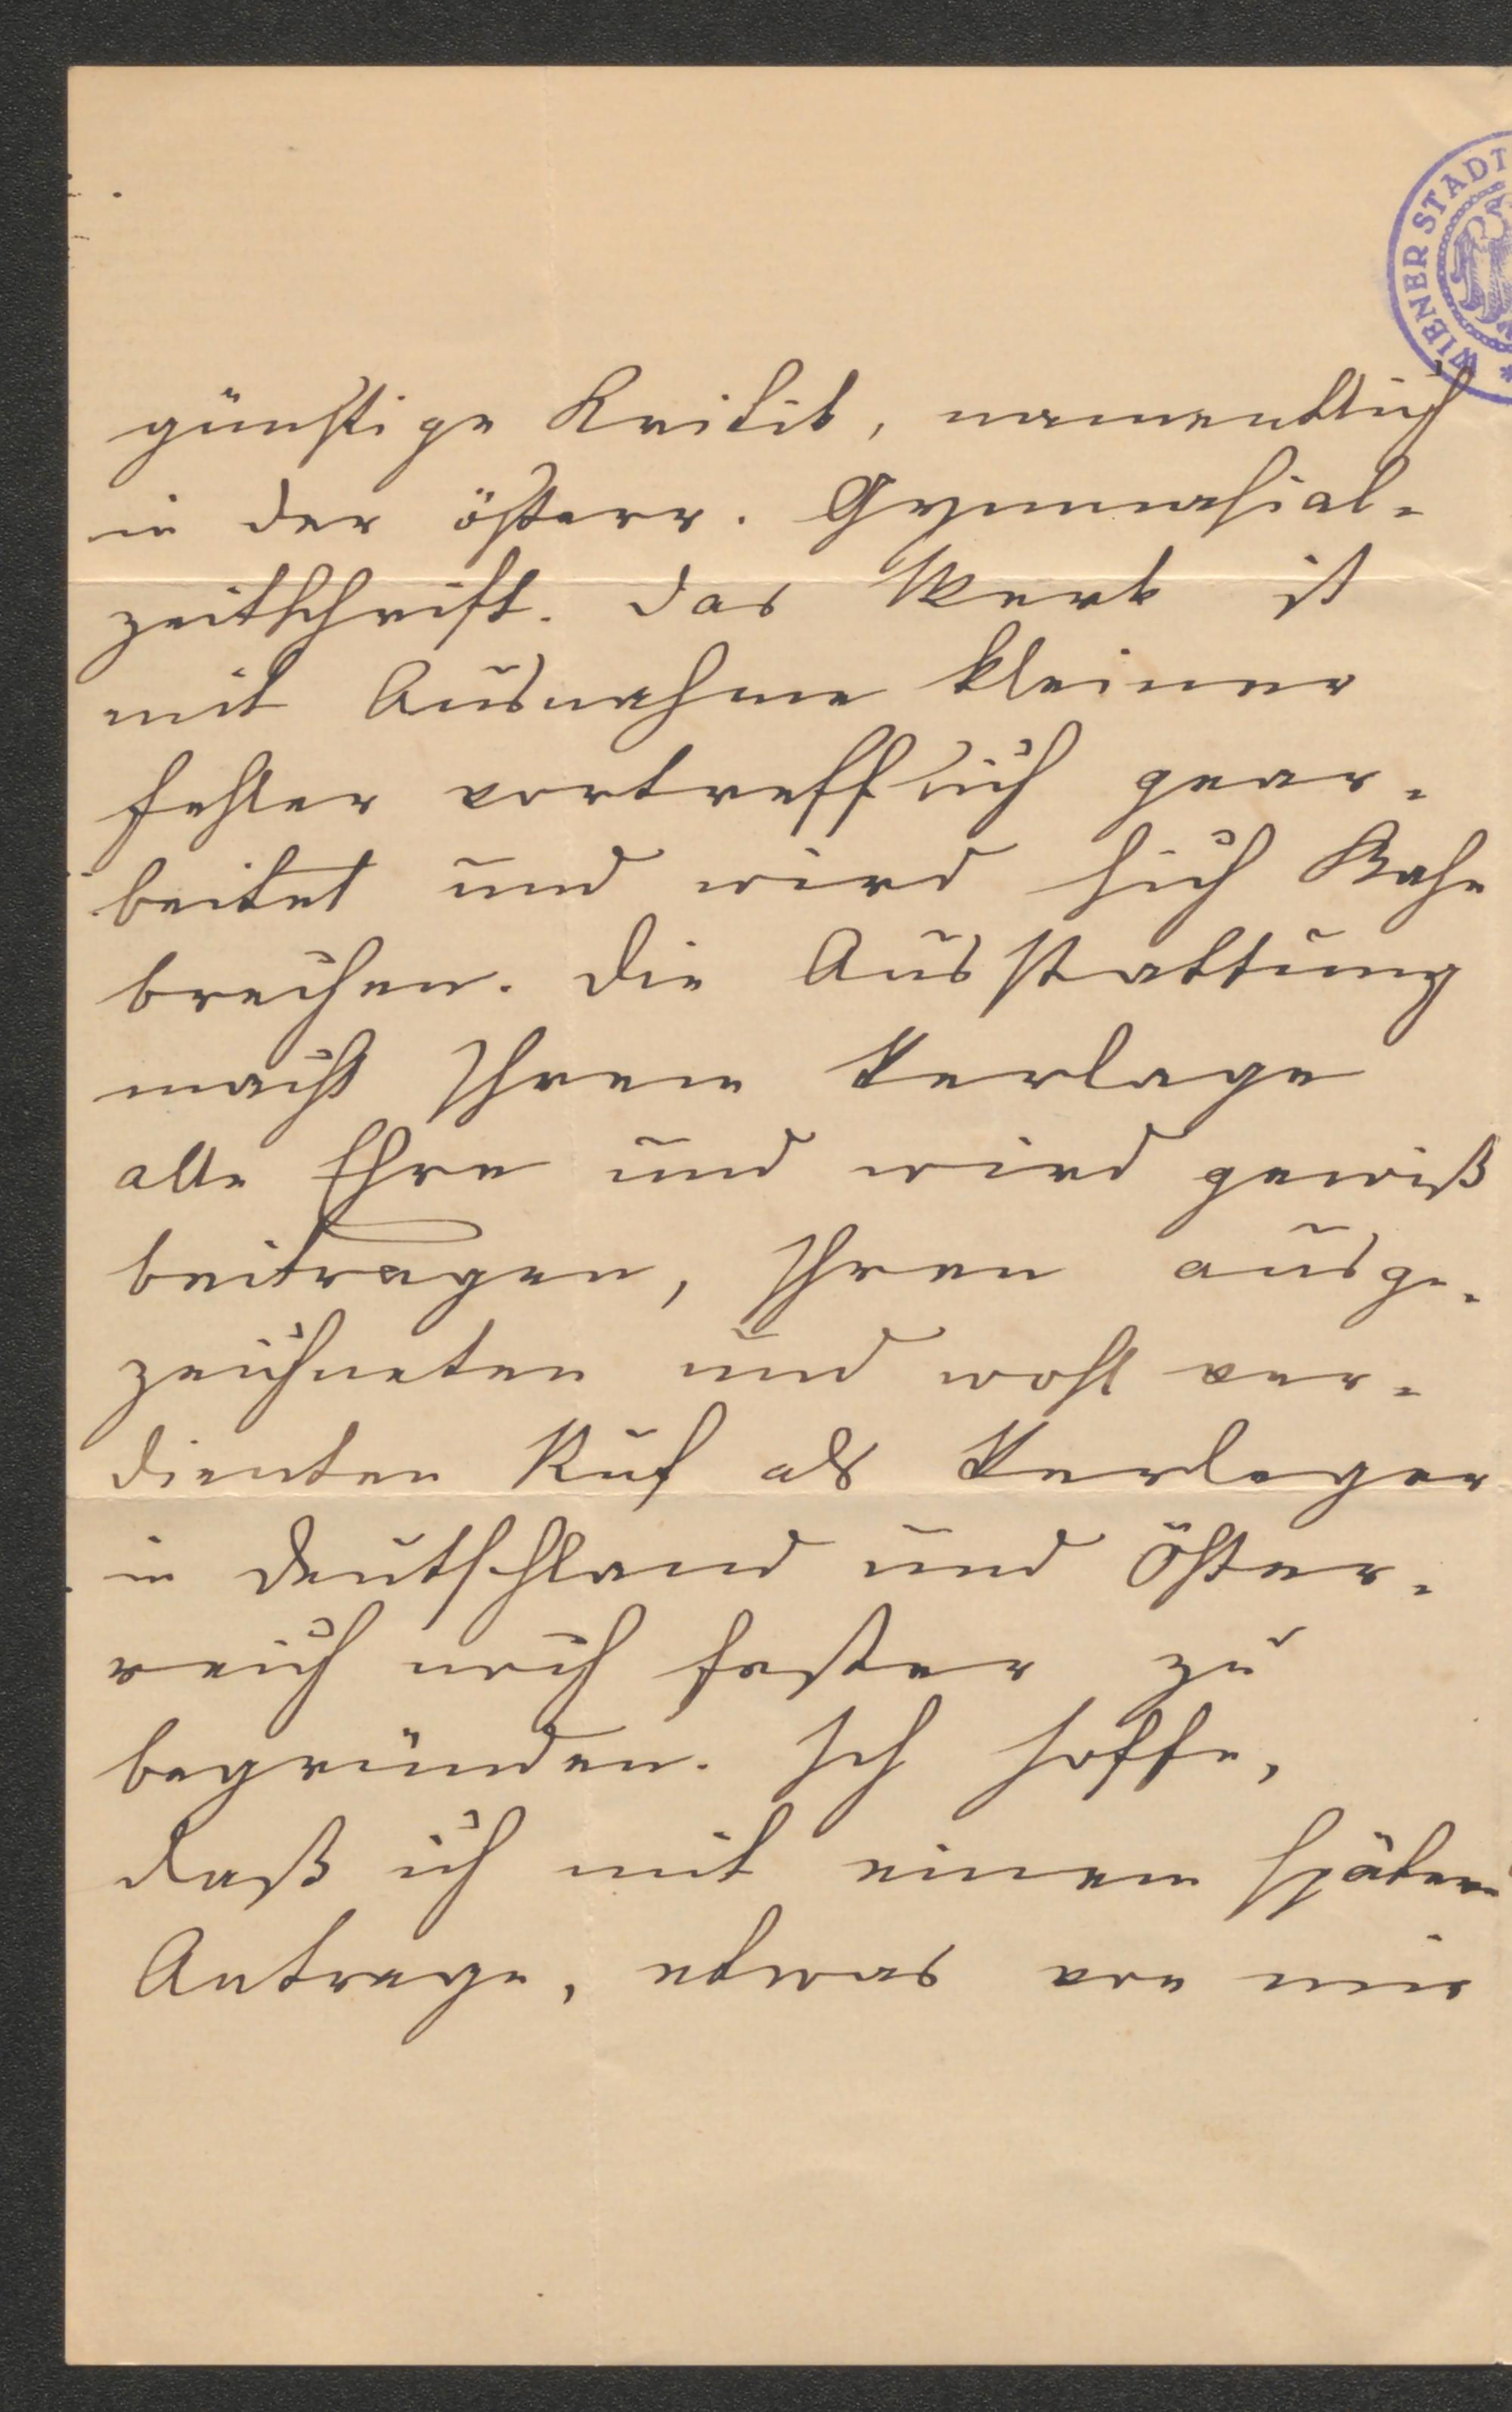 WIENER STADT
günstige Kritik, namentlich
in der österr. Gymnasial-
zeitschrift. Das Werk ist
mit Ausnahme kleiner
Fehler vortrefflich gear-
beitet und wird sich Bahn
brechen. Die Ausstattung
macht Ihrem Verlage
alle Ehre und wird gewiß
beitragen, Ihren ausge-
zeichneten und wohl ver-
dienten Ruf als Verleger
in Deutschland und Öster-
reich noch fester zu
begründen. Ich hoffe,
daß ich mit einem spätern
Antrage, etwas von mir